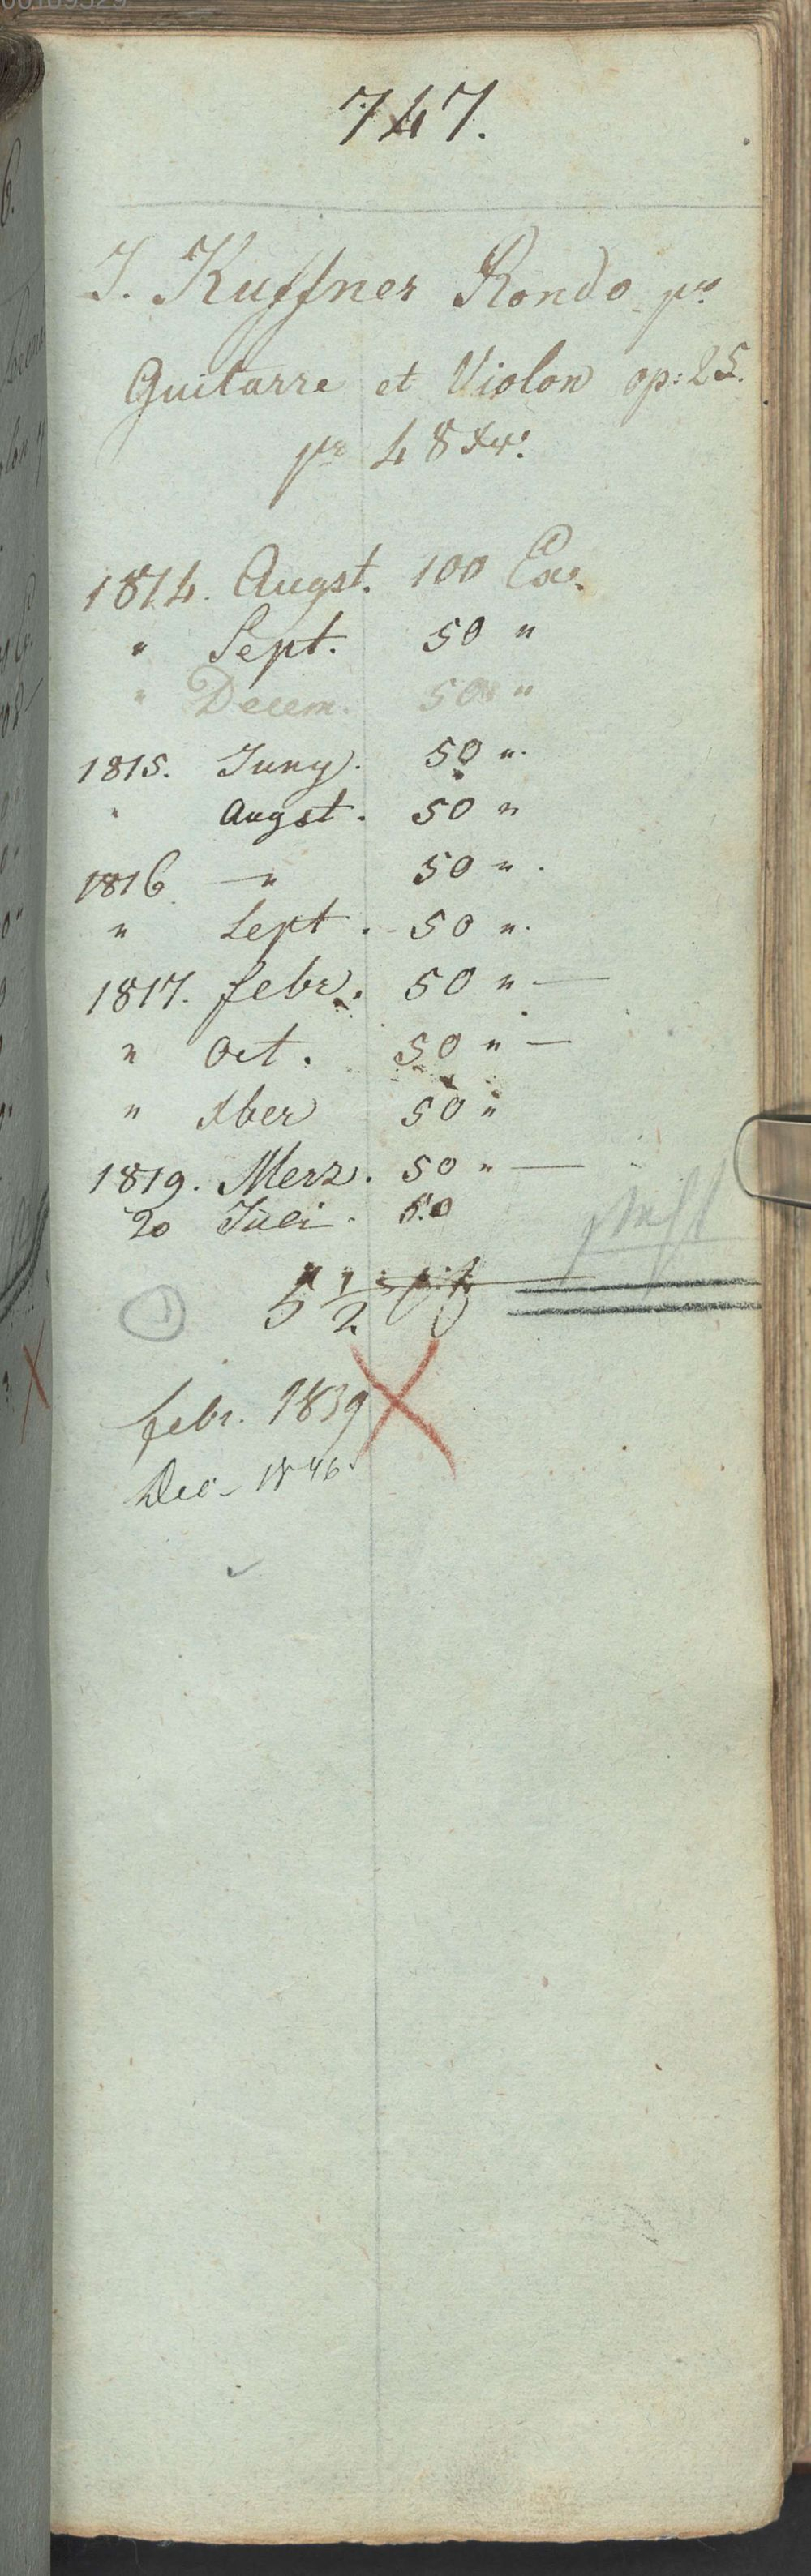 747.
J. Kuffner Rondo pr
Guitarre et Violon op: 25.
pr 48 Xr.
1814. Augst. 100 Ex.
" Sept. 50 "
" Decem. 50 "
1815. Juny. 50 ".
" Augst. 50 "
1816 — " 50 ".
" Sept. 50 ".
1817. febr. 50 " —
" Oct. 50 " —
" Xber 50 "
1819. Merz. 50 " —
20 Juli. 50
5 1/2
febr. 1839
Dec. 1846.